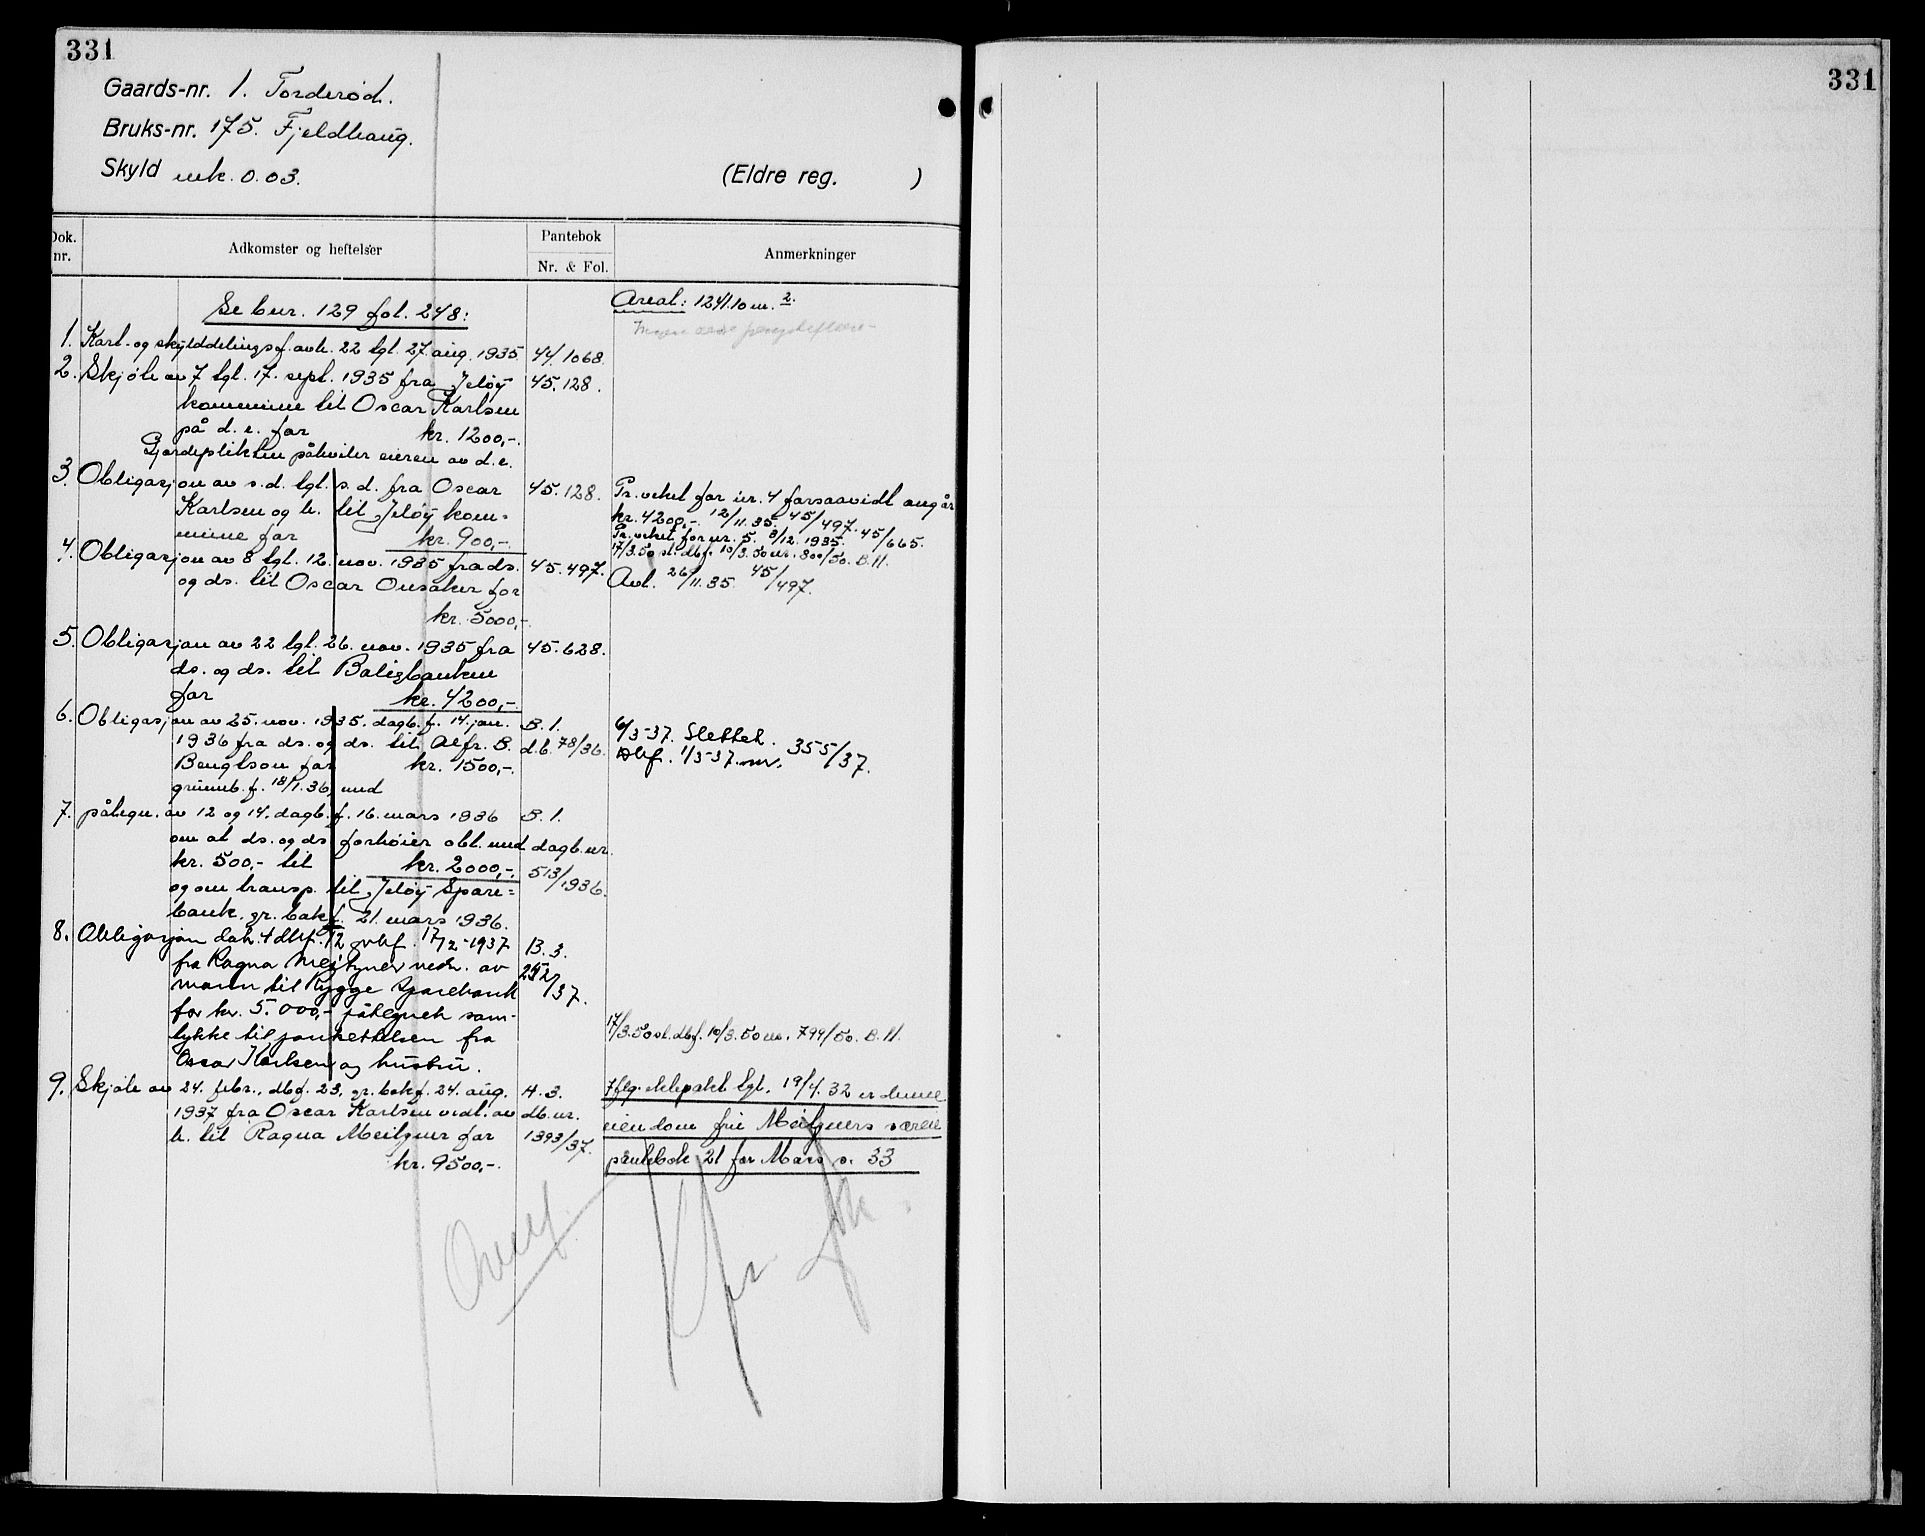 331
Gaards-nr. 1. Torderød.
Bruks-nr. 175. Fjeldhaug.
Skyld mk. 0.03.
(Eldre reg. )
Dok. nr.
Adkomster og heftelser
Pantebok
Nr. & Fol.
Anmerkninger
Se bnr. 129 fol. 248:
Areal: 1241.10 m.2.
1. Kart- og skylddelingsf. avh. 22 tgl. 27. aug. 1935 44/1068
2. Skjøte av 7 tgl. 17. sept. 1935 fra Jeløy 45.128.
kommune til Oscar Karlsen
på d. e. for kr. 1200,-.
Gjerdeplikten påhviler eieren av d.e.
3. Obligasjon av s.d. tgl. s.d. fra Oscar 45.128.
Karlsen og h. til Jeløy kom=
mune for kr. 900,-.
Pr. veket for nr. 4 forsaavidt angår
kr. 4200,-. 12/11.35. 45/497.
Pr. veket for nr. 5. 3/12. 1935. 45/665.
17/3.50 sl. dbf. 10/3.50 nr. 800/50. B.11.
4. Obligasjon av 8 tgl. 12. nov. 1935 fra ds. 45.497.
og ds. til Oscar Onsaker for
kr. 5000,-.
Avl. 26/11.35. 45/497.
5. Obligasjon av 22 tgl. 26. nov. 1935 fra 45.628.
ds. og ds. til Boligbanken
for kr. 4200,-.
6. Obligasjon av 25. nov. 1935, dagb.f. 14. jan. B.1.
1936 fra ds. og ds. til Alfr. B. d.b. 78/36.
Bengtson for kr. 1500,-.
grunnb.f. 18/1.36, med
6/3-37. Slettet.
Dbf. 1/3-37. nr. 355/37.
7. påtegn. av 12 og 14. dagb.f. 16. mars 1936 B.1.
om at ds. og ds forhöier obl. med dagb.nr.
kr. 500,- til kr. 2000,-. 513/1936.
og om transp. til Jeløy Spare=
bank. gr. bokf. 21. mars 1936.
8. Obligasjon dat. 4 dbf. 12 gvbf. 17/2-1937 B.3.
fra Ragna Meitzner vedt. av
mann til Rygge Sparebank /37.
for kr. 5.000,- påtegnet sam-
tykke til pantsettelsen fra
Oscar Karlsen og hustru.
17/3.50 sl. dbf. 10/3.50 nr. 799/50. B.11.
9. Skjøte av 24. febr., dbf. 23, gr. bokf. 24. aug. A.3.
1937 fra Oscar Karlsen vedt. av db.nr.
h. til Ragna Meitzner for 1393/37.
kr. 9500,-.
Iflg. ektepakt tgl. 19/4.32 er denne
eiendom fru Meitzners særeie
pantebok 21 for Moss s. 33
331